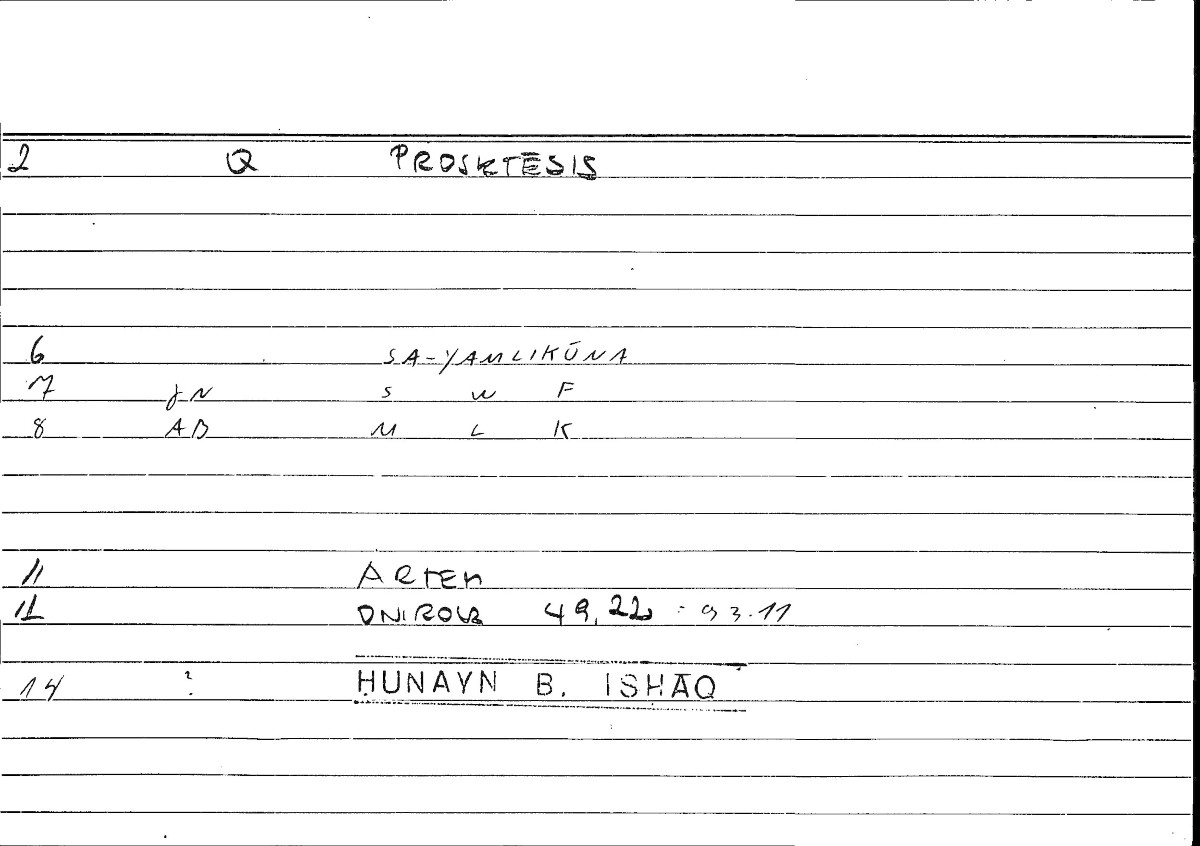 2 Q PROSKTĒSIS
6 SA-YAMLIKŪNA
7 JN S W F
8 AB M L K
11 ARTEM
12 ONIROKR 49,22 : 93.11
14 ? ḤUNAYN B. ISḤĀQ